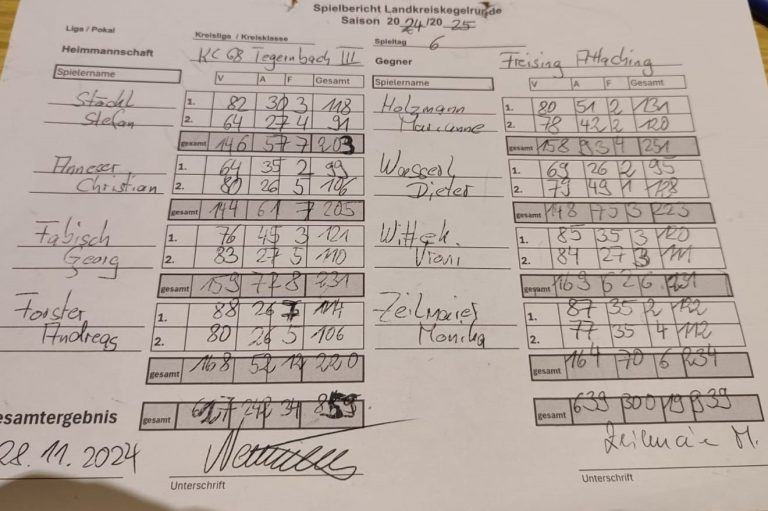 Spielbericht Landkreiskegelrunde
Saison 2024/2025
Liga / Pokal
Kreisliga / Kreisklasse
Spieltag 6
Heimmannschaft KC 68 Tegernbach III
Gegner Freising Attaching
Spielername V A F Gesamt
Spielername V A F Gesamt
Stöckl 1. 82 30 3 118
Stefan 2. 64 27 4 91
gesamt 146 57 7 203
Holzmann 80 51 2 131
Marianne 78 42 2 120
gesamt 158 93 4 251
Anneser 1. 64 35 2 99
Christian 2. 80 26 5 106
gesamt 144 61 7 205
Wasserl 69 26 2 95
Dieter 79 49 1 128
gesamt 148 75 3 223
Fabisch 1. 76 45 3 121
Georg 2. 83 27 5 110
gesamt 159 72 8 231
Wittek 1. 85 35 3 120
Vroni 2. 84 27 3 111
gesamt 169 62 6 231
Forster 1. 88 26 7 114
Andreas 2. 80 26 5 106
gesamt 168 52 12 220
Zeilmaier 1. 87 35 2 122
Monika 2. 77 35 4 112
gesamt 164 70 6 234
esamtergebnis gesamt 617 242 34 859
gesamt 639 300 19 939
28.11.2024
Zeilmaier M.
Unterschrift
Unterschrift